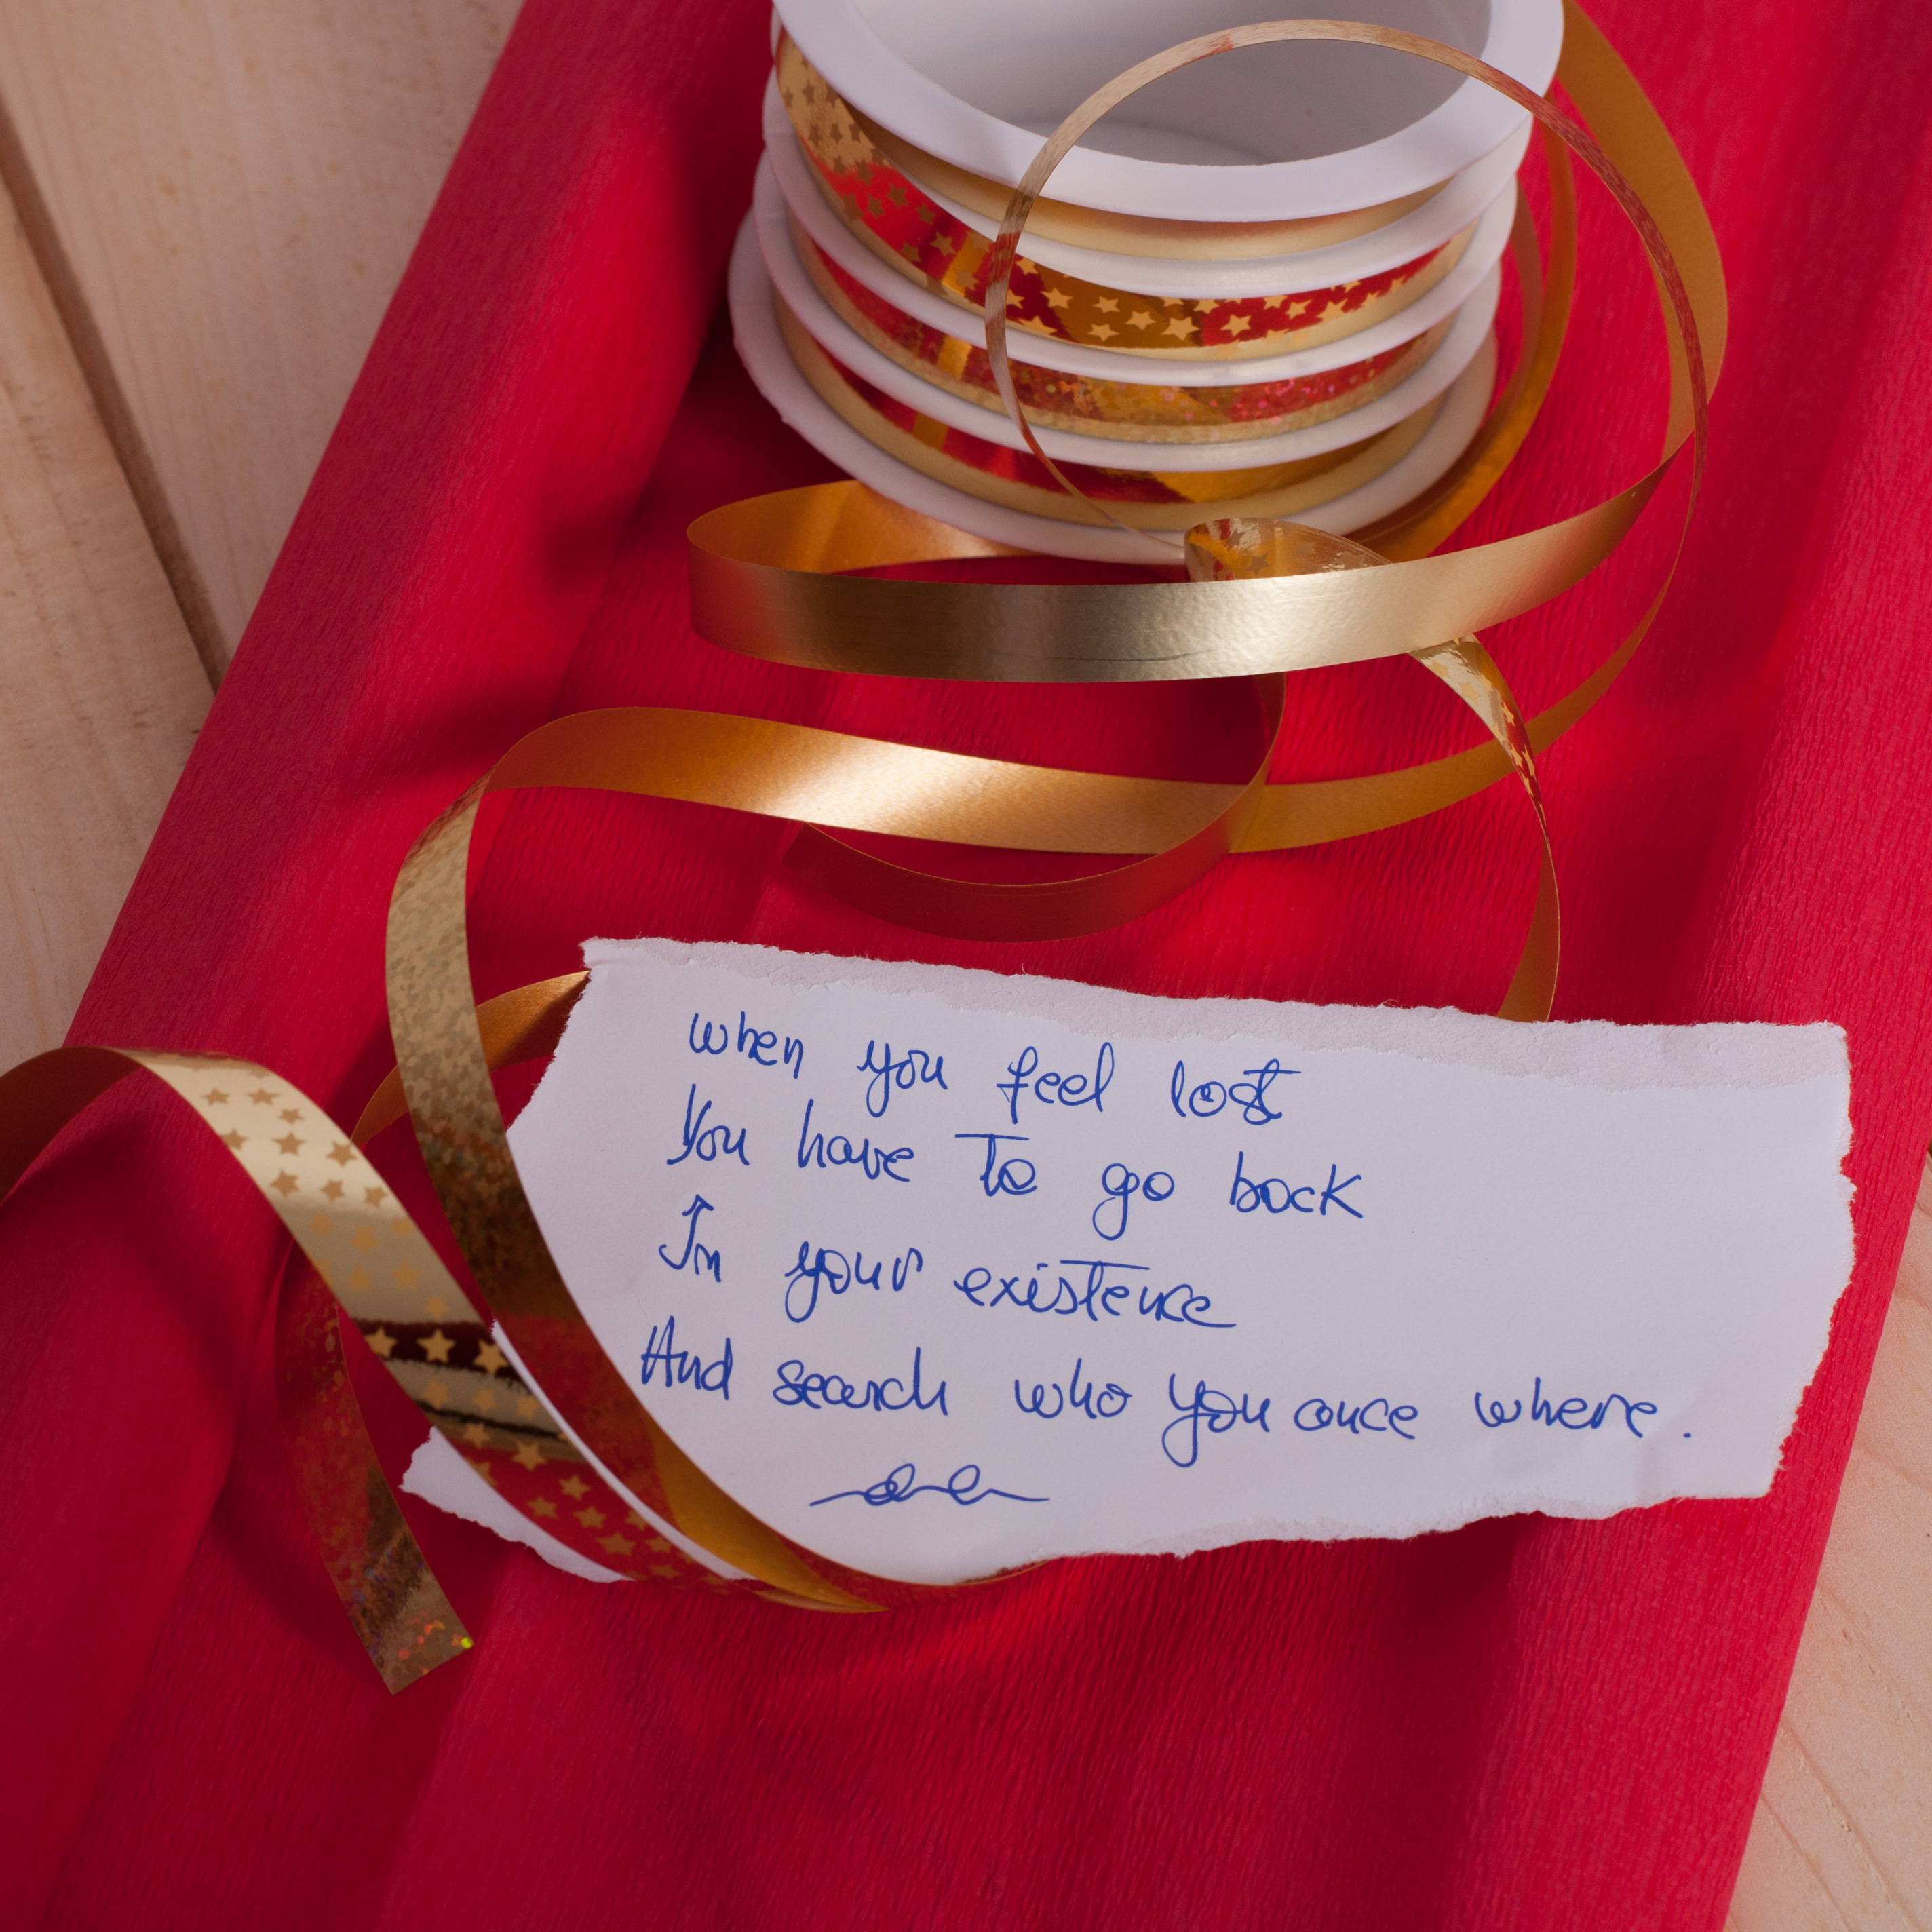 when you feel lost
You have to go back
In your existence
And search who you once where.